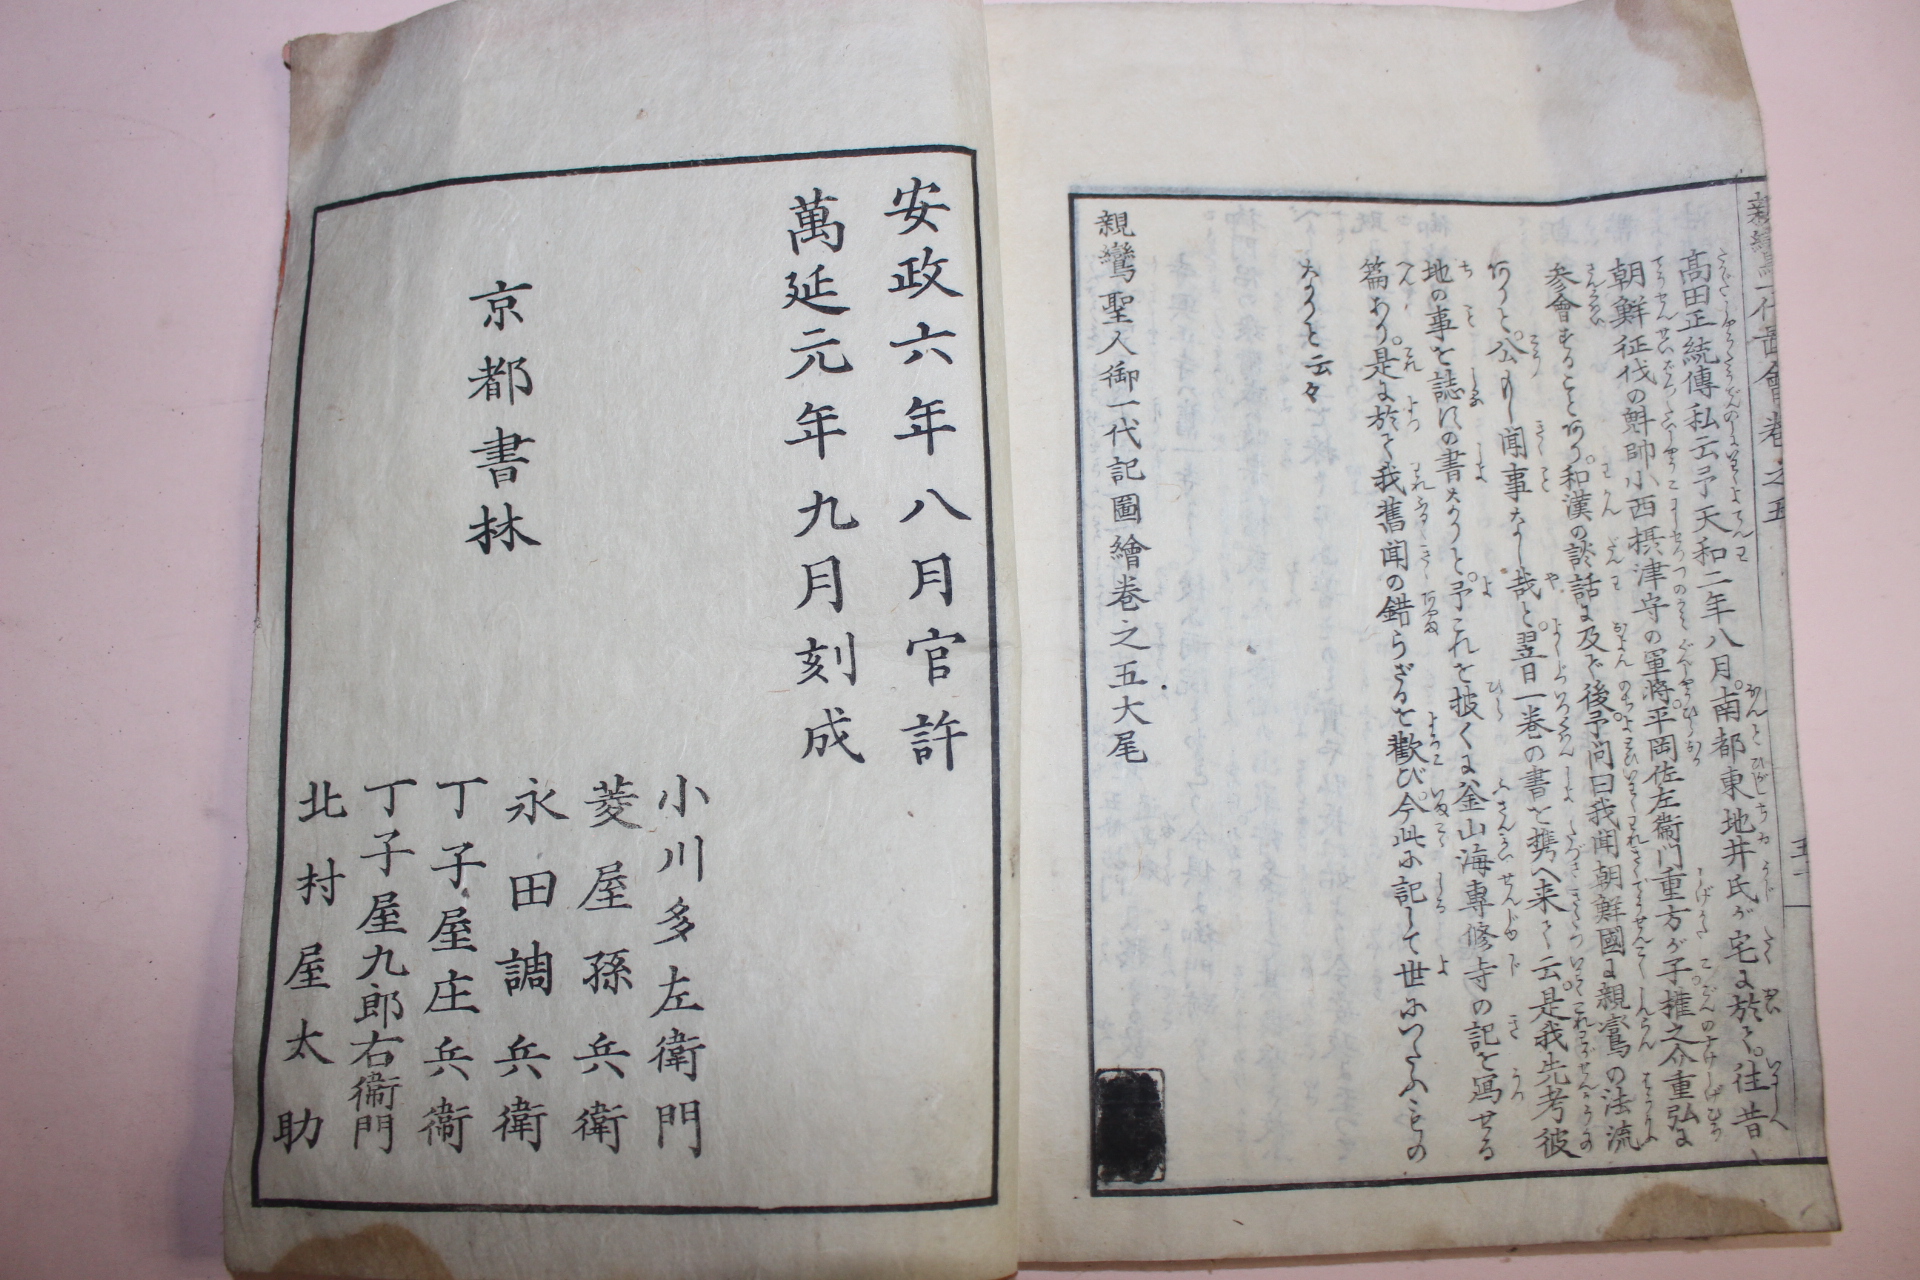 親鸞聖人一代啚會卷之五
高田正統傳私云予天和二年八月南都東地井氏が宅に於て往昔
朝鮮征伐の魁帥小西摂津守の軍將平岡佐左衞門重方が子權之介重弘に
参會することあり和漢の談話に及び後予问曰我聞朝鮮國に親鸞の法流
ありと公もし聞事なし哉と翌日一巻の書を携へ来て云是我先考彼
地の事を誌すの書なりと予これを披くに釜山海專修寺の記を寫せる
篇あり是に於て我舊聞の錯らざるを歡び今此に記して世につたふるもの
なりと云々
親鸞聖人御一代記圖繪卷之五大尾
安政六年八月官許
萬延元年九月刻成
京都書林
小川多左衛門
菱屋孫兵衛
永田調兵衛
丁子屋庄兵衞
丁子屋九郎右衞門
北村屋太助